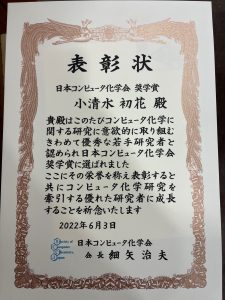 表彰状
日本コンピュータ化学会 奨学賞
小清水 初花 殿
貴殿はこのたびコンピュータ化学に
関する研究に意欲的に取り組む
きわめて優秀な若手研究者と
認められ日本コンピュータ化学会
奨学賞に選ばれました
ここにその栄誉を称え表彰すると
共にコンピュータ化学研究を
牽引する優れた研究者に成長
することを祈念いたします
2022年6月3日
Society of
Computer
Chemistry,
Japan
日本コンピュータ化学会
会長 細矢治夫